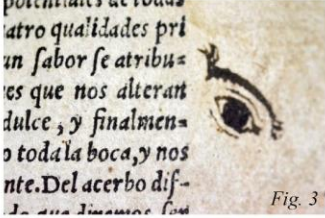 potentiales de todas
atro qualidades pri
un sabor se atribu=
es que nos alteran
dulce, y finalmen=
o toda la boca, y nos
nte. Del acerbo dif-
Fig. 3